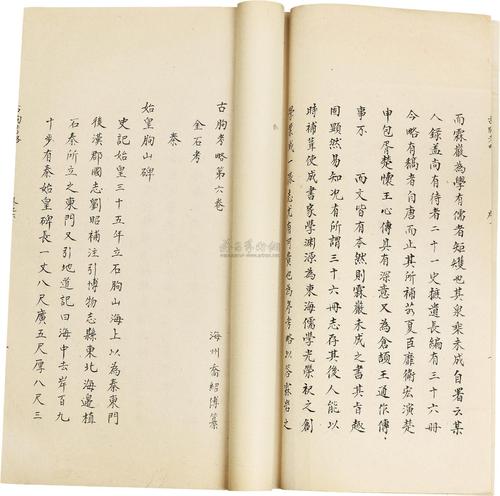 而霖巖為學有儒者矩矱也其泉桒未成自署云某
人錄盖尚有待者二十一史摭遺長編有三十六冊
今略有稿者自唐而止其所補如夏臣靡衛宏演楚
申包胥楚懷王心傳具有深意又為倉頡王逌作傳
事不　而文皆有本然則霖巖未成之書其旨趣
固顯然易知况有所謂三十六冊志存其後人能以
時補算使成書家學淵源為東海儒學光榮祝之創
古朐考略第六卷
海州喬紹傅纂
金石考
秦
始皇朐山碑
史記始皇三十五年立石朐山海上以為秦東門
後漢郡國志劉昭補注引博物志縣東北海邊植
石秦所立之東門又引地道記曰海中去岸百九
十步有秦始皇碑長一丈八尺廣五尺厚八尺三